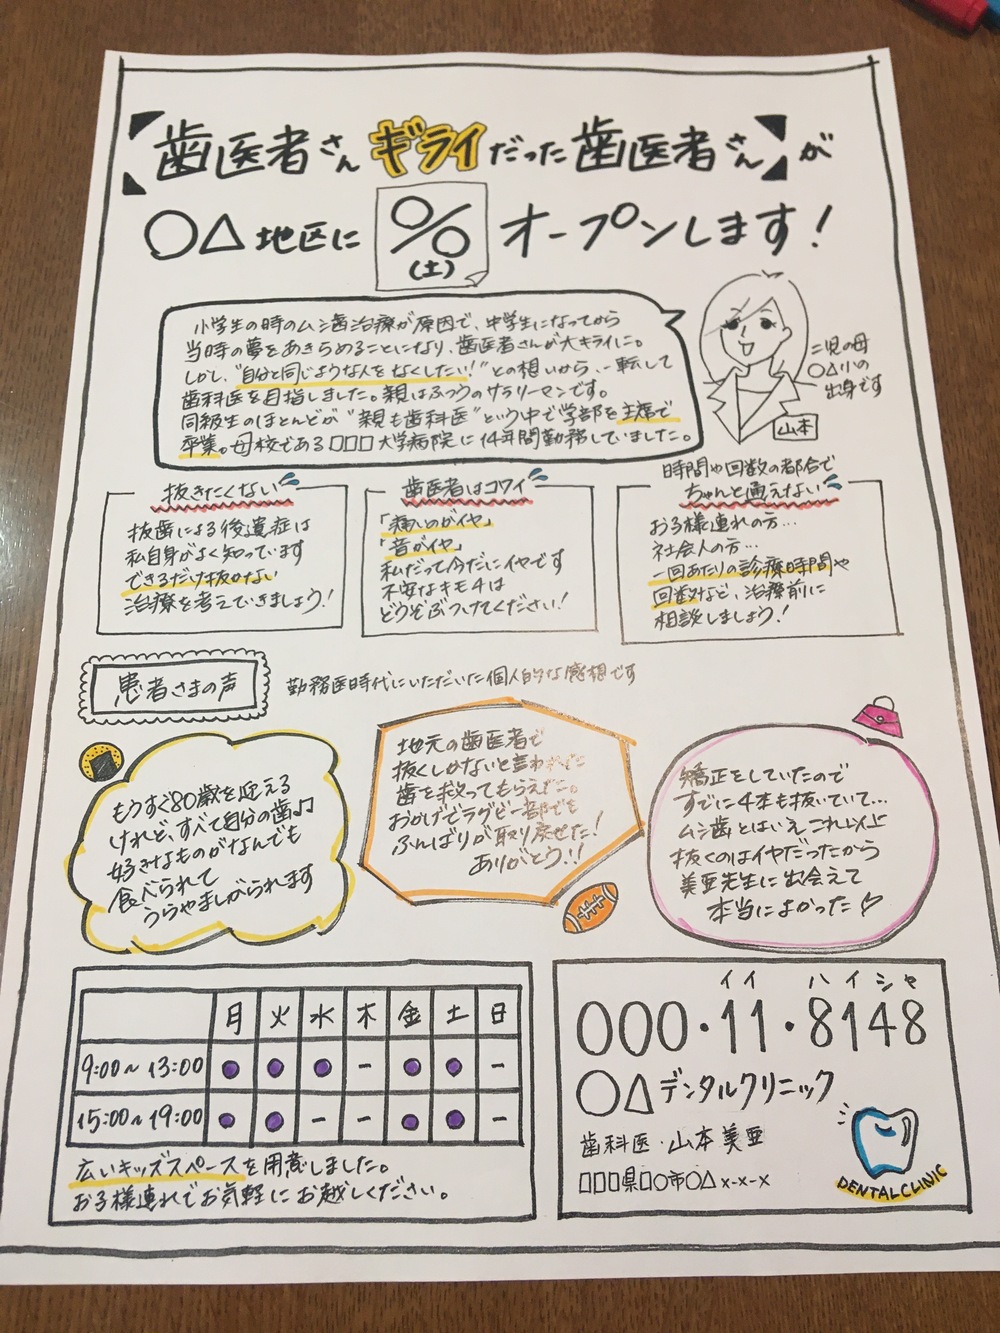 【歯医者さんギライだった歯医者さん】が
○△地区に%(土)オープンします!
小学生の時のムシ歯治療が原因で、中学生になってから
当時の夢をあきらめることになり、歯医者さんが大キライに。
しかし、"自分と同じような人をなくしたい!"との想いから、一転して
歯科医を目指しました。親はふつうのサラリーマンです。
同級生のほとんどが"親も歯科医"という中で学部を主席で
卒業。母校である□□□大学病院に14年間勤務していました。
二児の母
○△小の
出身です
山本
抜きたくない
抜歯による後遺症は
私自身がよく知っています
できるだけ抜かない
治療を考えていきましょう!
歯医者はコワイ
「痛いのがイヤ」
「音がイヤ」
私だって今だにイヤです
不安なキモチは
どうぞぶつけてください!
時間や回数の都合で
ちゃんと通えない
お子様連れの方…
社会人の方…
一回あたりの診療時間や
回数など、治療前に
相談しましょう!
患者さまの声
勤務医時代にいただいた個人的な感想です
もうすぐ80歳を迎える
けれど、すべて自分の歯♫
好きなものがなんでも
食べられて
うらやましがられます
地元の歯医者で
抜くしかないと言われた
歯を救ってもらえた。
おかげでラグビー部でも
ふんばりが取り戻せた!
ありがとう!!
矯正をしていたので
すでに4本も抜いていて…
ムシ歯とはいえこれ以上
抜くのはイヤだったから
美亜先生に出会えて
本当によかった♡
月 火 水 木 金 土 日
9:00~13:00 ● ● ● - ● ● -
15:00~19:00 ● ● - - ● ● -
広いキッズスペースを用意しました。
お子様連れでお気軽にお越しください。
イイ ハイシャ
000・11・8148
○△デンタルクリニック
歯科医・山本美亜
□□□県□○市○△x-x-x
DENTAL CLINIC